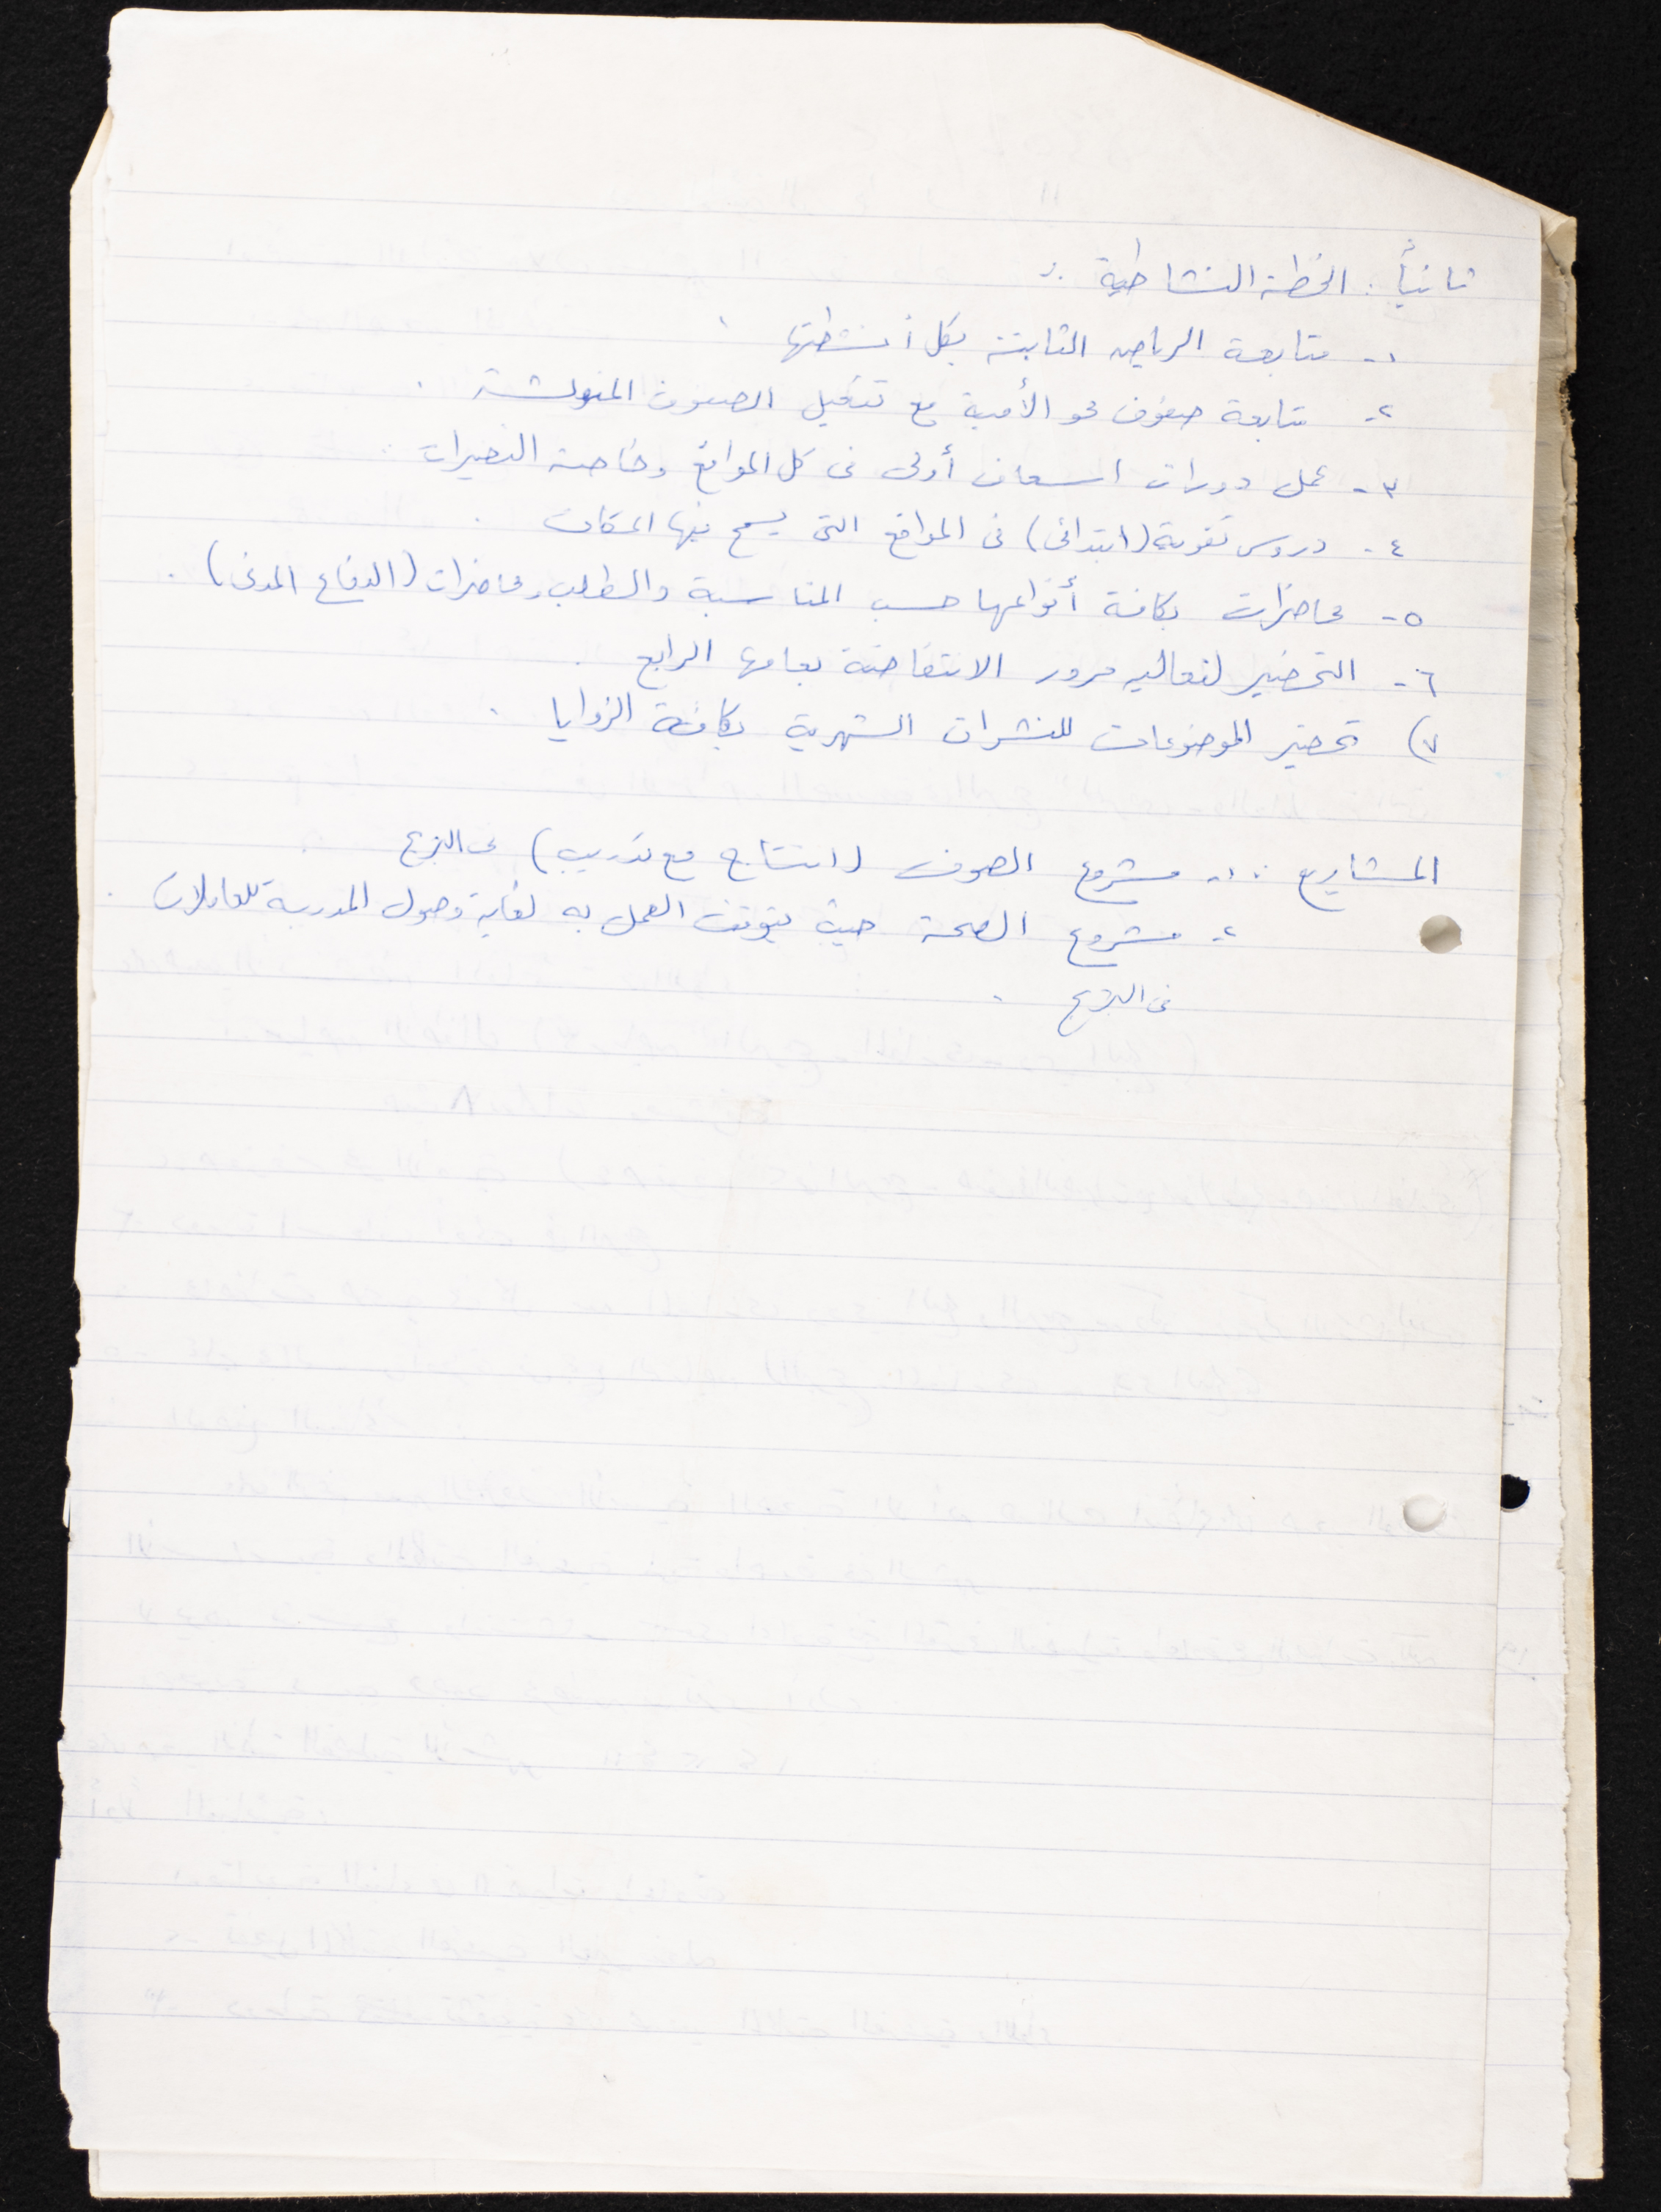 ثانياً : الخطة النشاطية :
١- متابعة الرياض الثابتة بكل أنشطتها .
٢- متابعة صفوف محو الأمية مع تفعيل الصفوف .
٣- عمل دورات اسعاف أولى فى كل المواقع وخاصة النصيرات .
٤- دروس تقوية (ابتدائى) فى المواقع التى يسمح فيها المكان .
٥- محاضرات بكافة أنواعها حسب المناسبة والطلب ومحاضرات (الدفاع المدنى) .
٦- التحضير لفعاليه مرور الانتفاضة بعامها الرابع .
٧) تحضير الموضوعات للنشرات الشهرية بكافة الزوايا .
المشاريع : ١- مشروع الصوف (انتاج مع تدريب) فى البريج
٢- مشروع الصحة حيث يتوقف العمل به لغاية وصول المدربة للعاملات .
فى البريج .